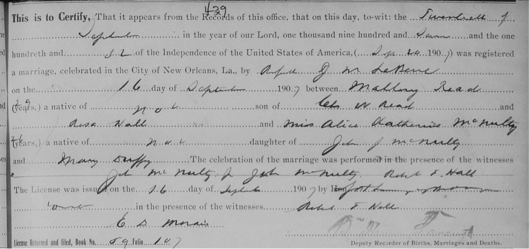 439
This is to Certify, That it appears from the Records of this office, that on this day, to-wit: the
September in the year of our Lord, one thousand nine hundred and Seven and the one
hundredth and 32 of the Independence of the United States of America, (Sep 20 1907) was registered
a marriage, celebrated in the City of New Orleans, La., by J. M.
on the 16 day of September 1907 between Read
(29 years,) a native of N.O.L. son of Chs W Read and
Rosa Hall and Miss Alice Katherine McNulty
(26 years,) a native of N.O.L. daughter of John J McNulty
and Mary Duffy The celebration of the marriage was performed in the presence of the witnesses
John McNulty Jr John McNulty, Robert F. Hall
The License was issued on the 16 day of Sept 1907
in the presence of the witnesses Robert F Hall
E D
License Returned and Filed, Book No. 59 folio 107
Deputy Recorder of Births, Marriages and Deaths.